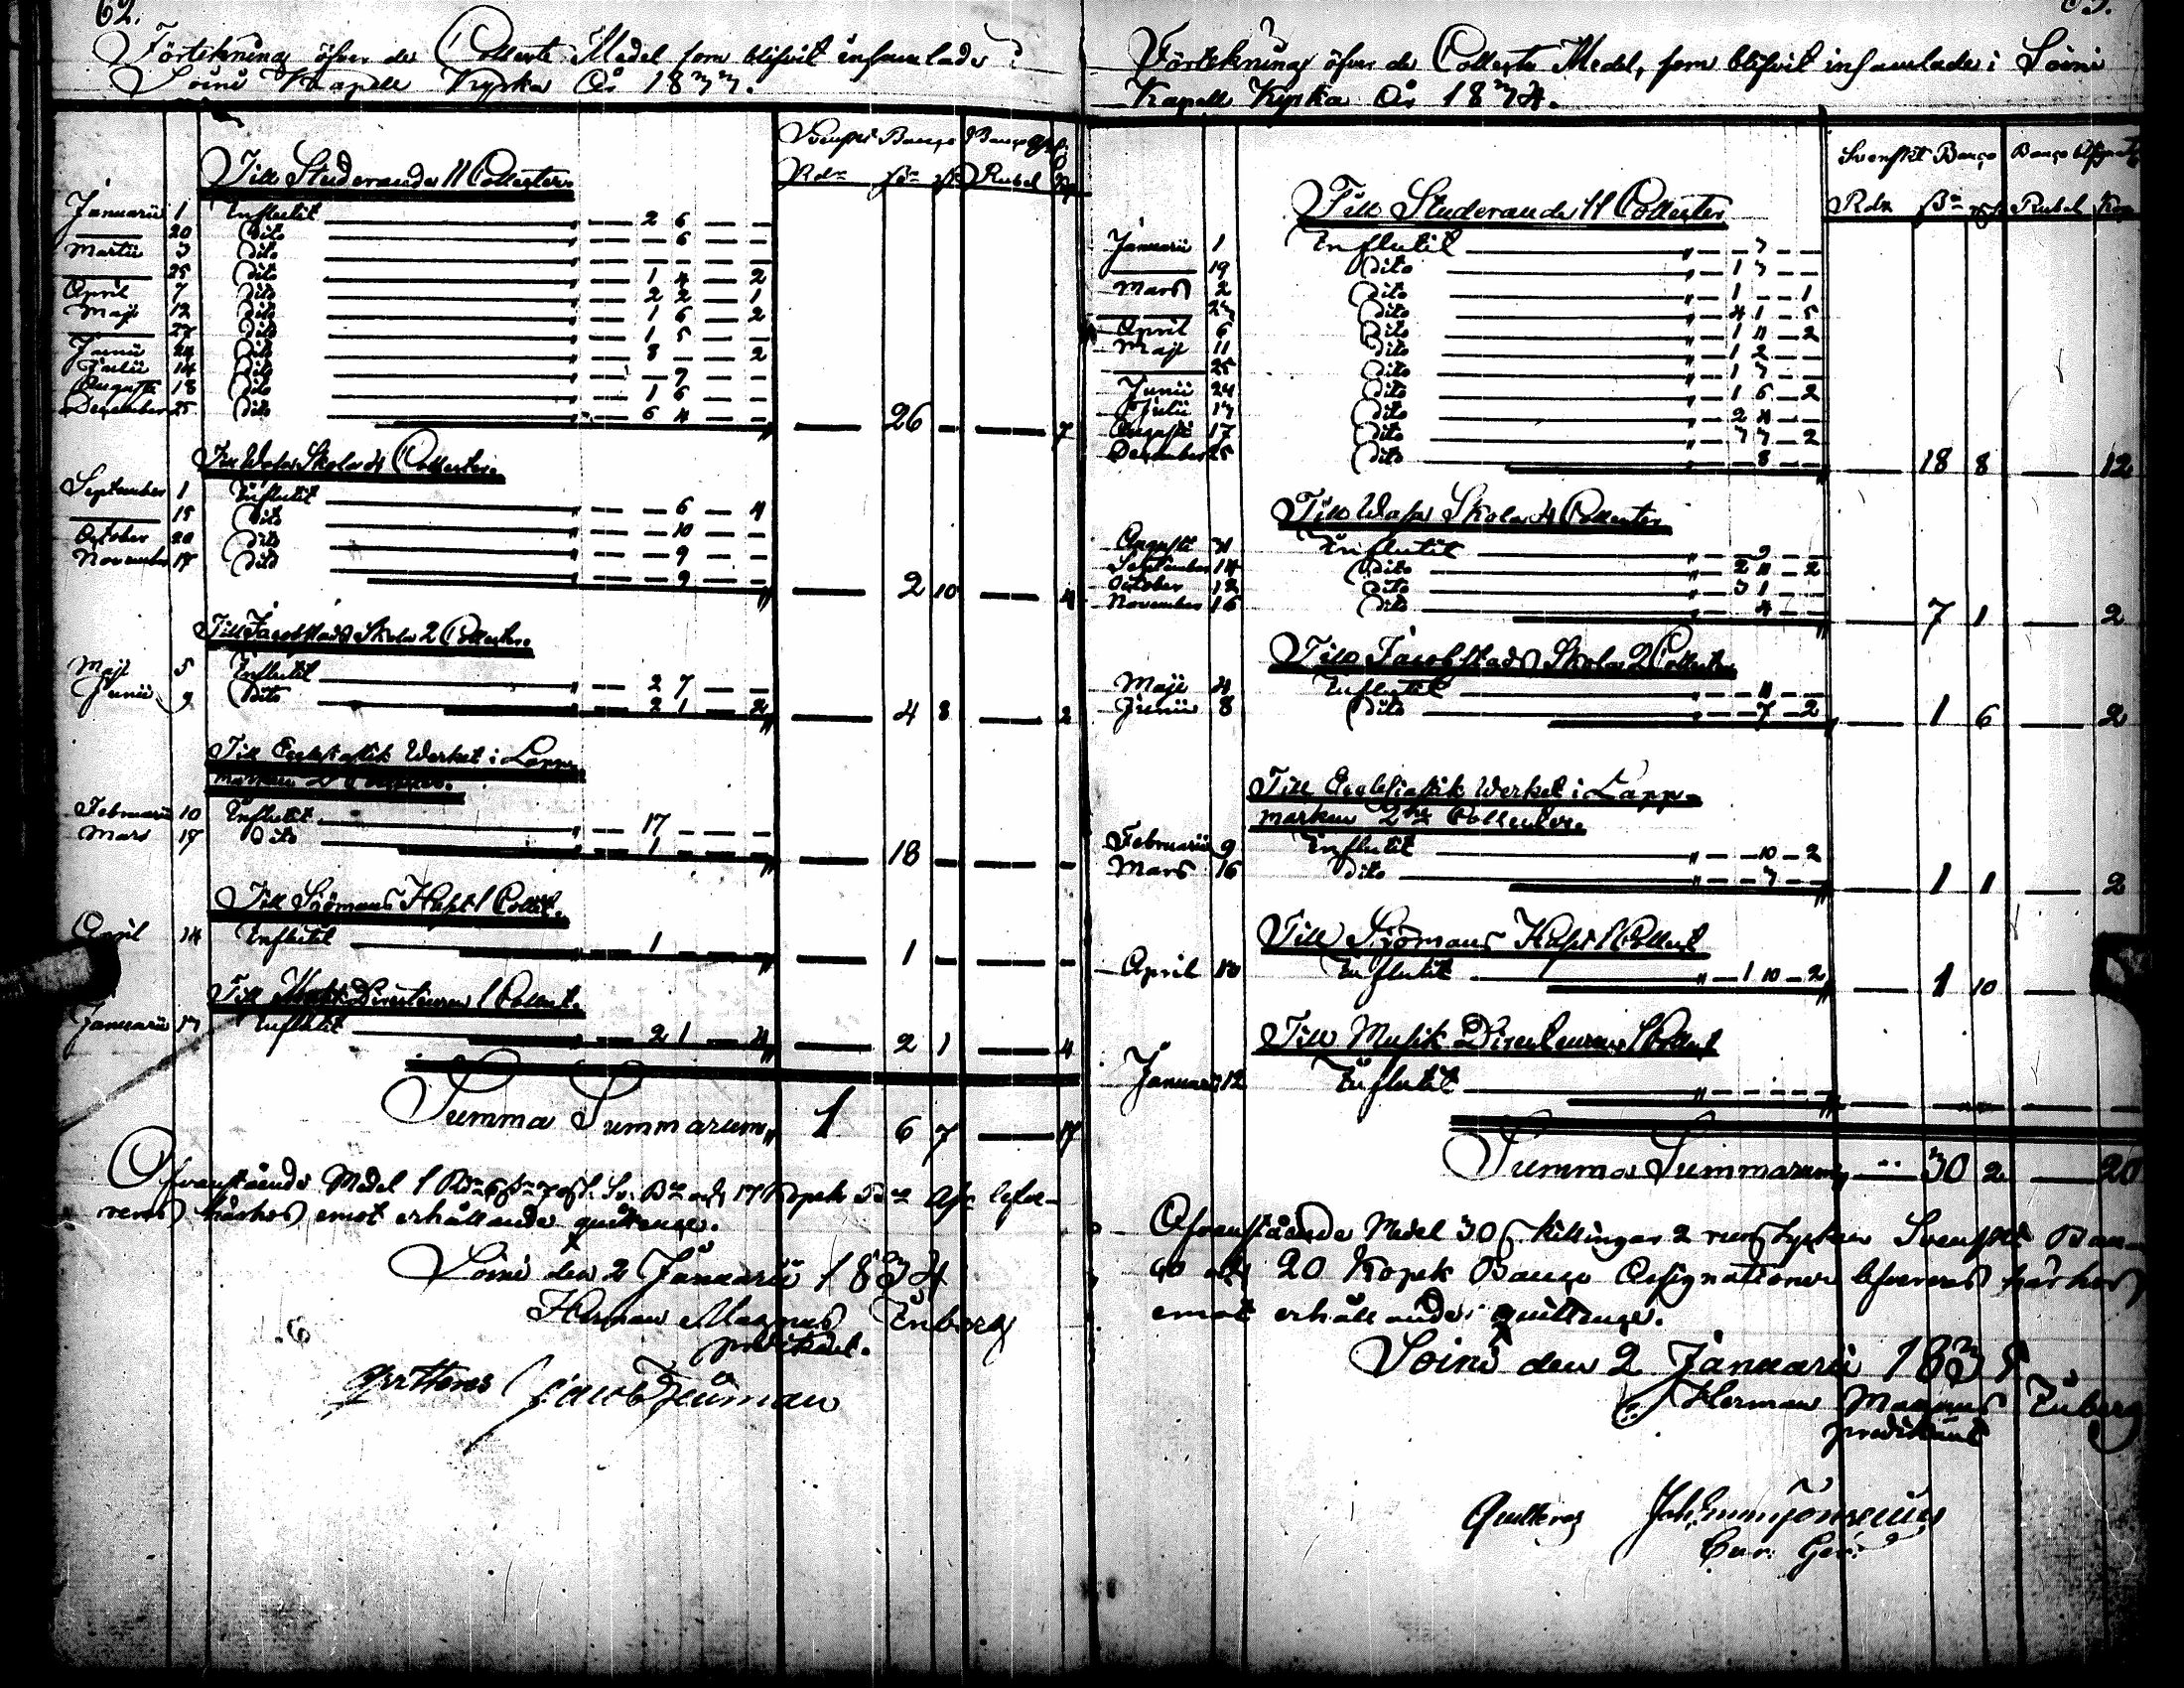 62.
Förtekning öfver de Collecte Medel som blifvit insamlade i
Soini Kapell Kyrka År 1833.
Svenskt Banco Banco
Rdr Rubel
Till Studerande 11 Collecter.
Januarii 1 Influtit 2 6
20 Dito 6
Martii 3 Dito
25 Dito 1 4 2
April 7 Dito 2 2 1
Maji 12 Dito 1 6 2
27 Dito 1 5
Junii 24 Dito 8 2
Julii 14 Dito 7
Augusti 18 Dito 1 6
December 25 Dito 6 4 26 7
Till Wasa Skola 4 Collecter.
September 1 Influtit 6 4
15 Dito 10
October 20 Dito 9
November 17 Dito 9 2 10 4
Till Jacobstads Skola 2 Collecter.
Maji 5 Influtit 2 7
Junii 9 Dito 2 1 2 4 8 2
Till Ecclesiastik Werket i Lapp-
marken 2 Collecter.
Februarii 10 Influtit 17
Mars 17 Dito 1 18
Till Sjömans Huset 1 Collect.
April 14 Influtit 1 1
Till Musik Directeuren 1 Collect.
Januarii 13 Influtit 2 1 4 2 1 4
Summa Summarum 1 6 7 17
Ofvanstående Medel 1 Rdr 6 17 Kopek lefve-
reras härhos emot erhållande quittence.
Soini den 2 Januarii 1834
Herman Magnus Enberg
predikant.
Qvitteras Jacob
Förtekning öfver de Collecte Medel, som blifvit insamlade i Soini
Kapell Kyrka År 1834.
Svenskt Banco Banco
Rdr Rubel Kop
Till Studerande 11 Collecter
Januarii 1 Influtit 3
19 Dito 1 3
Mars 2 Dito 1 1
23 Dito 4 1 5
April 6 Dito 1 11 2
Maji 11 Dito 1 2
25 Dito 1 3
Junii 24 Dito 1 6 2
Julii 13 Dito 2 11
Augusti 17 Dito 3 3 2
December 25 Dito 8 18 8 12
Till Wasa Skola 4 Collecter
Augusti 31 Influtit 9
September 14 Dito 2 11 2
October 12 Dito 3 1
November 16 Dito 4 7 1 2
Till Jacobstads Skola 2 Collecter
Maji 4 Influtit 11
Junii 8 Dito 7 2 1 6 2
Till Ecclesiastik Werket i Lapp-
marken 2ne Collecter.
Februarii 9 Influtit 10 2
Mars 16 Dito 3 1 1 2
Till Sjömans Huset 1 Collect
April Influtit 1 10 2 1 10
Till Musik Directeuren 1 Collect
Januarii 12 Influtit
Summa Summarum 30 2 20
Ofvanstående Medel 30 Skillingar 2 runstycken Svenskt Ban-
co och 20 Kopek Banco Assignationer lefvereras härhos
emot erhållande quittence.
Soini den 2 Januarii 1835
Herman Magnus Enberg
predikant
Quitteras